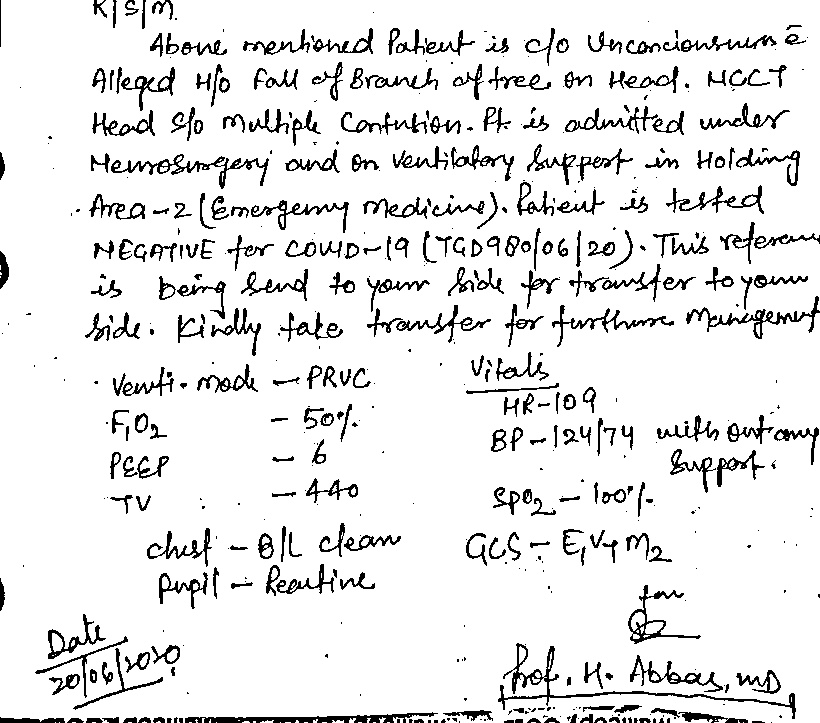 R/S/M
Above mentioned Patient is c/o Unconciousness c̄
Alleged H/o Fall of Branch of tree on Head. NCCT
Head S/o Multiple Contution. Pt. is admitted under
Neurosurgery and on Ventilatory Support in Holding
Area-2 (Emergency Medicine). Patient is tested
NEGATIVE for COVID-19 (TGD980/06/20). This reference
is being send to your side for transfer to your
side. Kindly take transfer for further Management
Venti. mode — PRVC
FiO2 — 50%
PEEP — 6
TV — 440
Vitals
HR-109
BP-124/74 without any
Support.
SPO2 — 100%
Chest — B/L clear
Pupil — Reactive
GCS — E1 VT M2
for
Date
20/06/2020
Prof. H. Abbas, MD